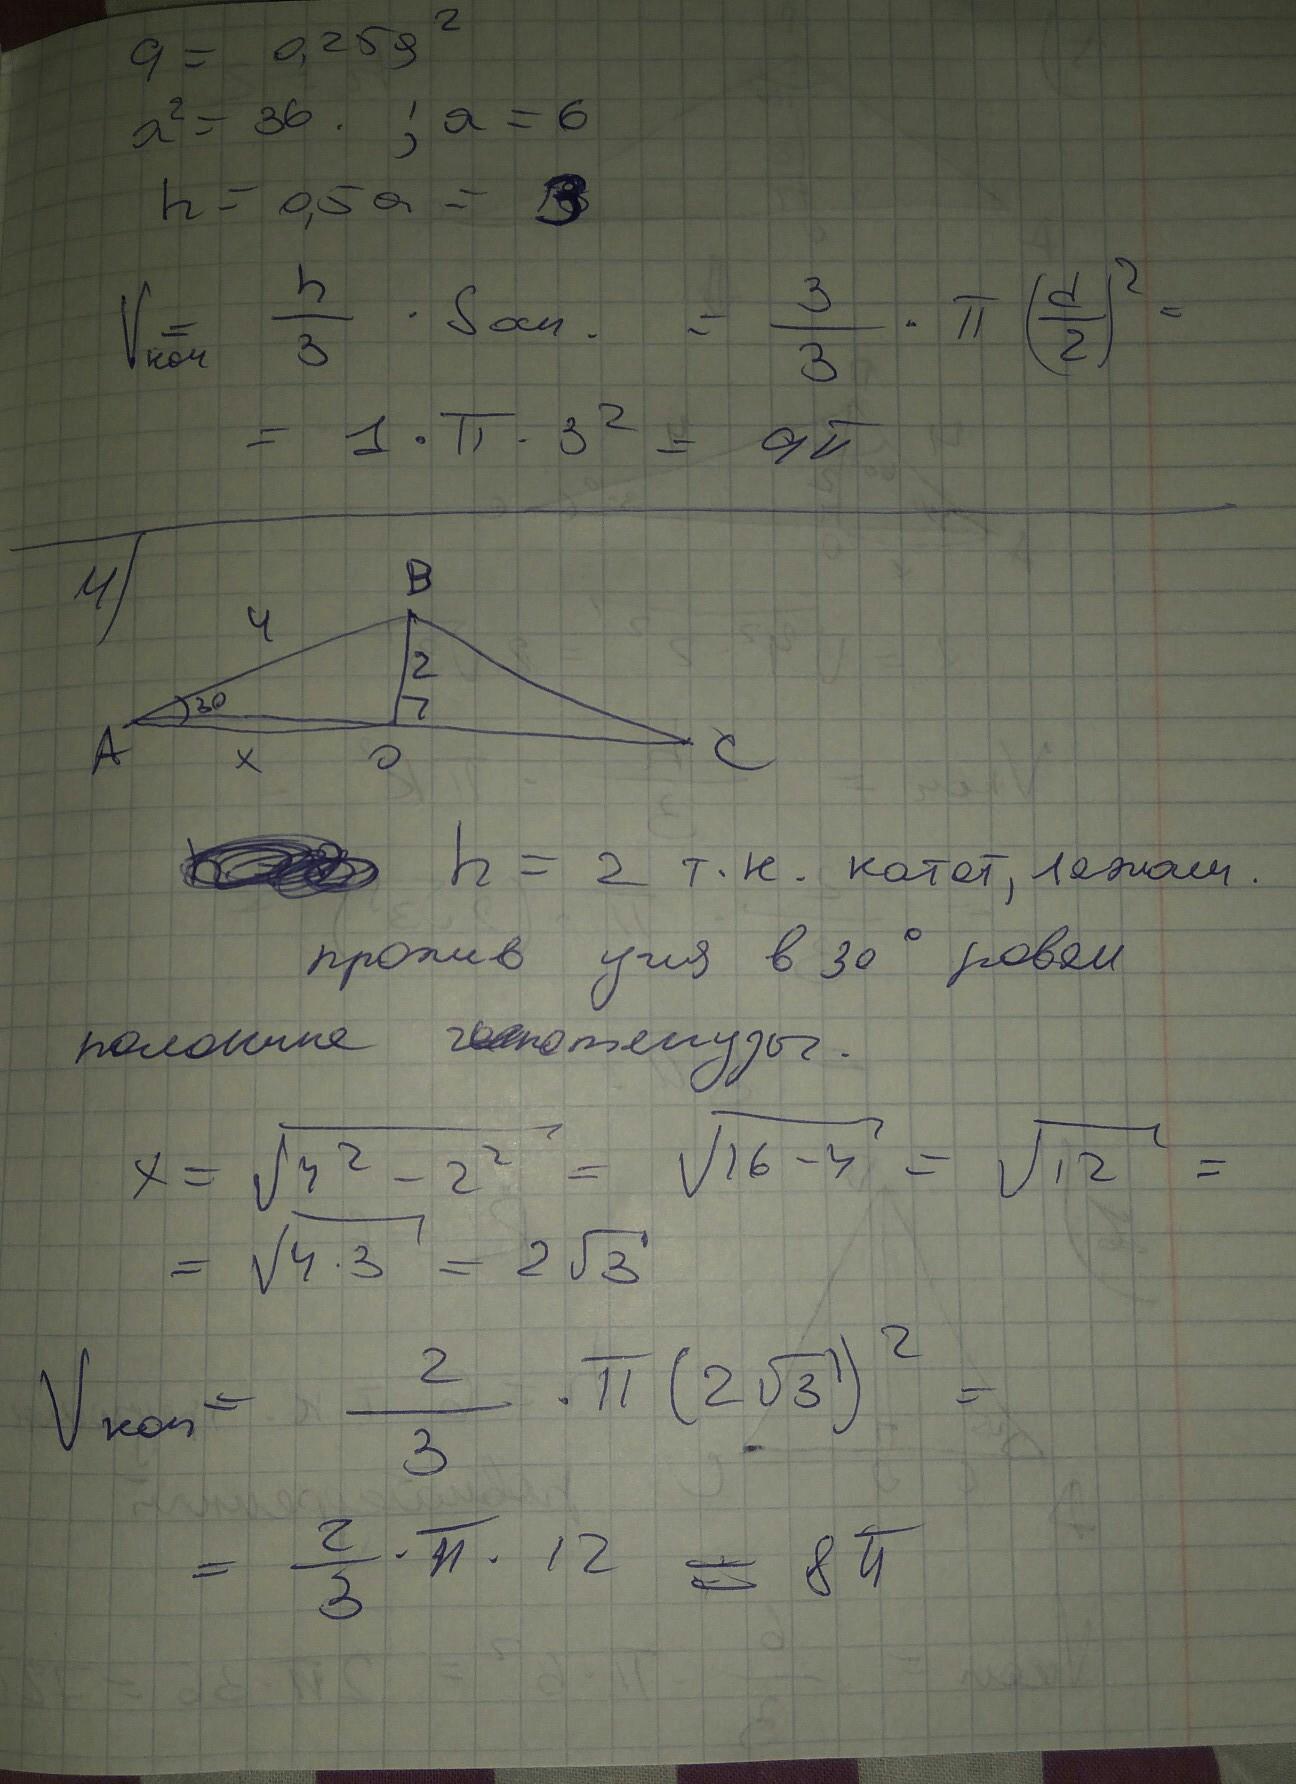 9 = 0,25a²
a² = 36. ; a = 6
h = 0,5a = 3
Vкон = h/3 · Sосн. = 3/3 · π (d/2)² =
= 1 · π · 3² = 9π
4)
B
4
2
30
A
x
O
C
h = 2 т.к. катет, лежащ.
против угла в 30° равен
половине гипотенузы.
x = √(4² - 2²) = √(16 - 4) = √12 =
= √(4·3) = 2√3
Vкон = 2/3 · π (2√3)² =
= 2/3 · π · 12 = 8π